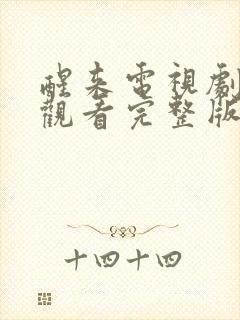 醒来電視劇
觀看完整版
十四十四